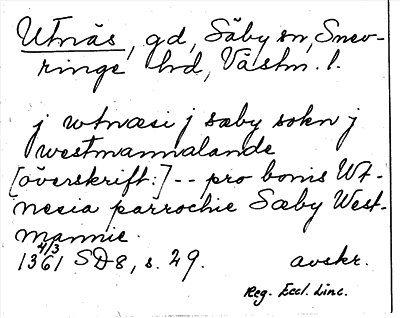 Utnäs, gd, Säby sn, Snev-
ringe hd, Västm. l.
j wtnæsi j sæby sokn j
westmannalande
[överskrift:] -- pro bonis Wt-
nesia parrochie Sæby West-
mannie.
1361 4/3 SD8, s. 29. avskr.
Reg. Eccl. Linc.